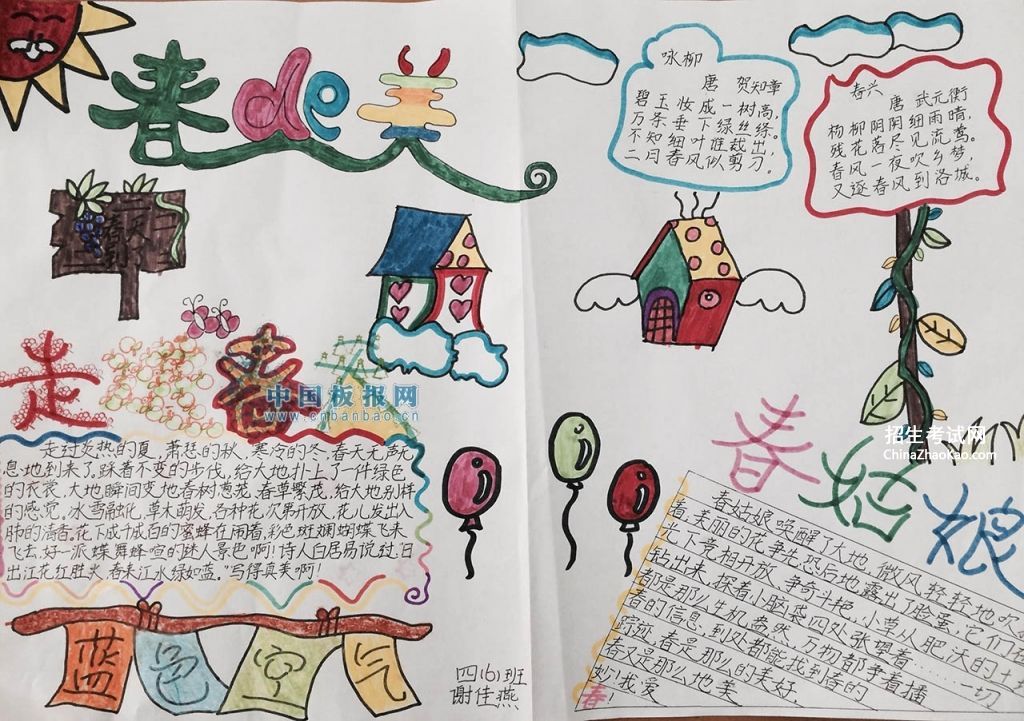 春de美
春天
到了
走进春天
中国板报网
www.cnbanbao.cn
走过炎热的夏，萧瑟的秋，寒冷的冬，春天无声无
息地到来了，踩着不变的步伐，给大地扑上了一件绿色
的衣裳，大地瞬间变地春树葱茏，春草繁茂，给大地别样
的感觉。冰雪融化，草木萌发，各种花次第开放，花儿发出入
肺的清香。花下成千成百的蜜蜂在闹着，彩色斑斓蝴蝶飞来
飞去，好一派蝶舞蜂喧的迷人景色啊！诗人白居易说过，"日
出江花红胜火，春来江水绿如蓝。"写得真美啊！
蓝色空气
四(6)班
谢佳燕
咏柳
唐 贺知章
碧玉妆成一树高，
万条垂下绿丝绦。
不知细叶谁裁出，
二月春风似剪刀。
春兴
唐 武元衡
杨柳阴阴细雨晴，
残花落尽见流莺。
春风一夜吹乡梦，
又逐春风到洛城。
招生考试网
ChinaZhaoKao.com
春姑娘
春姑娘唤醒了大地，微风轻轻地吹
着，美丽的花争先恐后地露出了脸蛋，它们在
光下竞相开放，争奇斗艳，小草从肥沃的土地
钻出来，探着小脑袋四处张望着……一切
都是那么生机盎然，万物都争着播
春的信息，到处都能找到春的
踪迹，春是那么的美好，
春又是那么地美
妙！我爱
春！